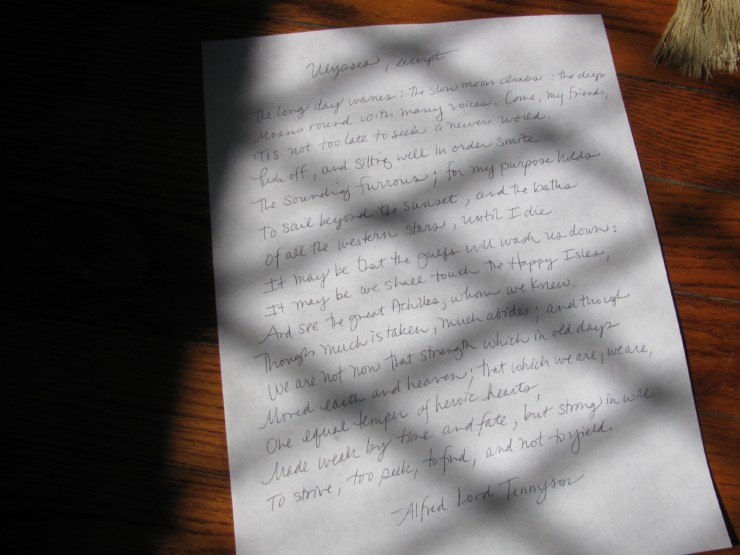 Ulysses, excerpt
The long day wanes: the slow moon climbs: the deep
Moans round with many voices. Come, my friends,
'Tis not too late to seek a newer world.
Push off, and sitting well in order smite
The sounding furrows; for my purpose holds
To sail beyond the sunset, and the baths
Of all the western stars, until I die.
It may be that the gulfs will wash us down:
It may be we shall touch the Happy Isles,
And see the great Achilles, whom we knew.
Though much is taken, much abides; and though
We are not now that strength which in old days
Moved earth and heaven; that which we are, we are,
One equal temper of heroic hearts,
Made weak by time and fate, but strong in will
To strive, too seek, to find, and not to yield.
-Alfred Lord Tennyson